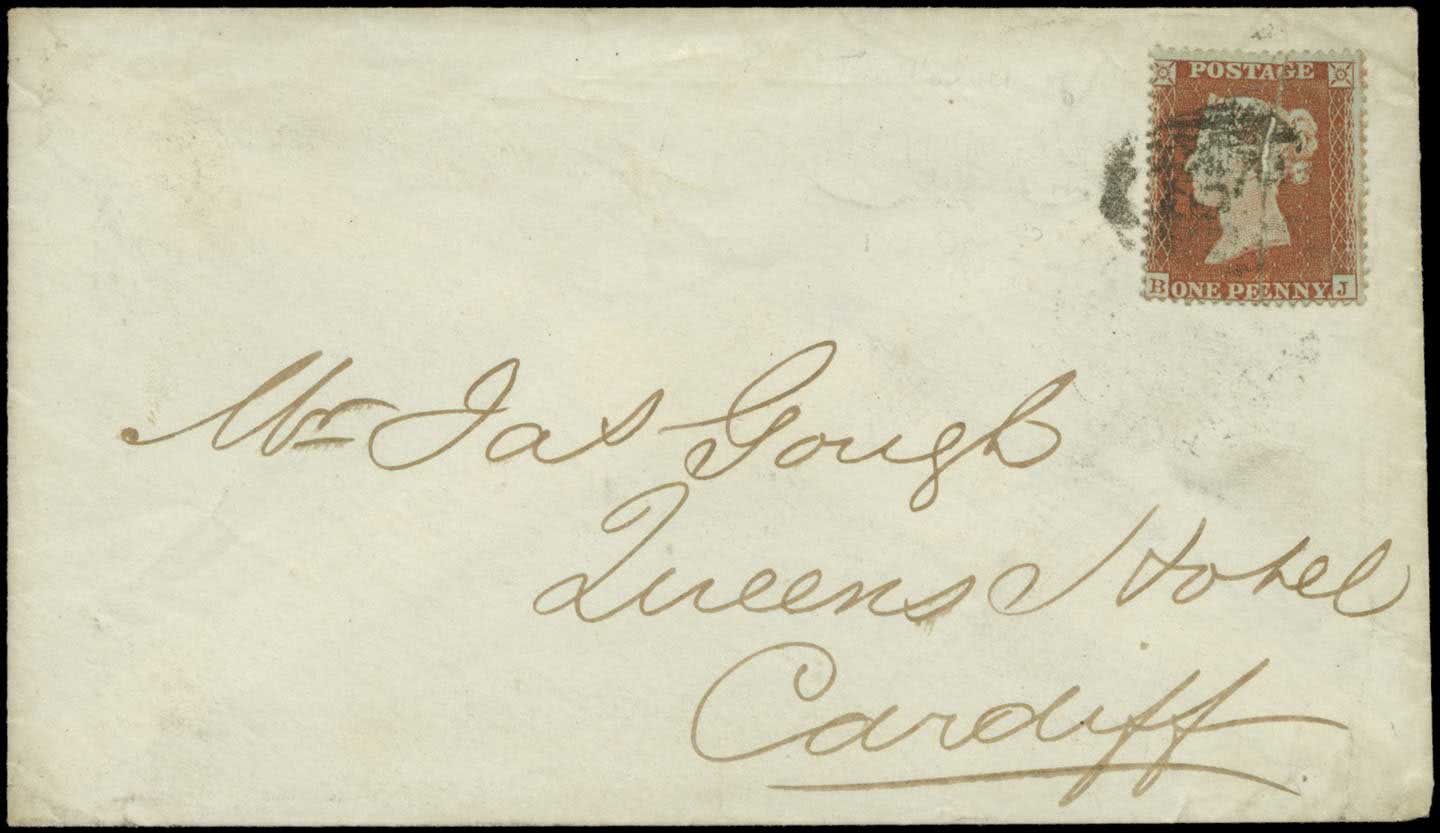 POSTAGE
B ONE PENNY. J
Mr Jas Gough
Queens Hotel
Cardiff